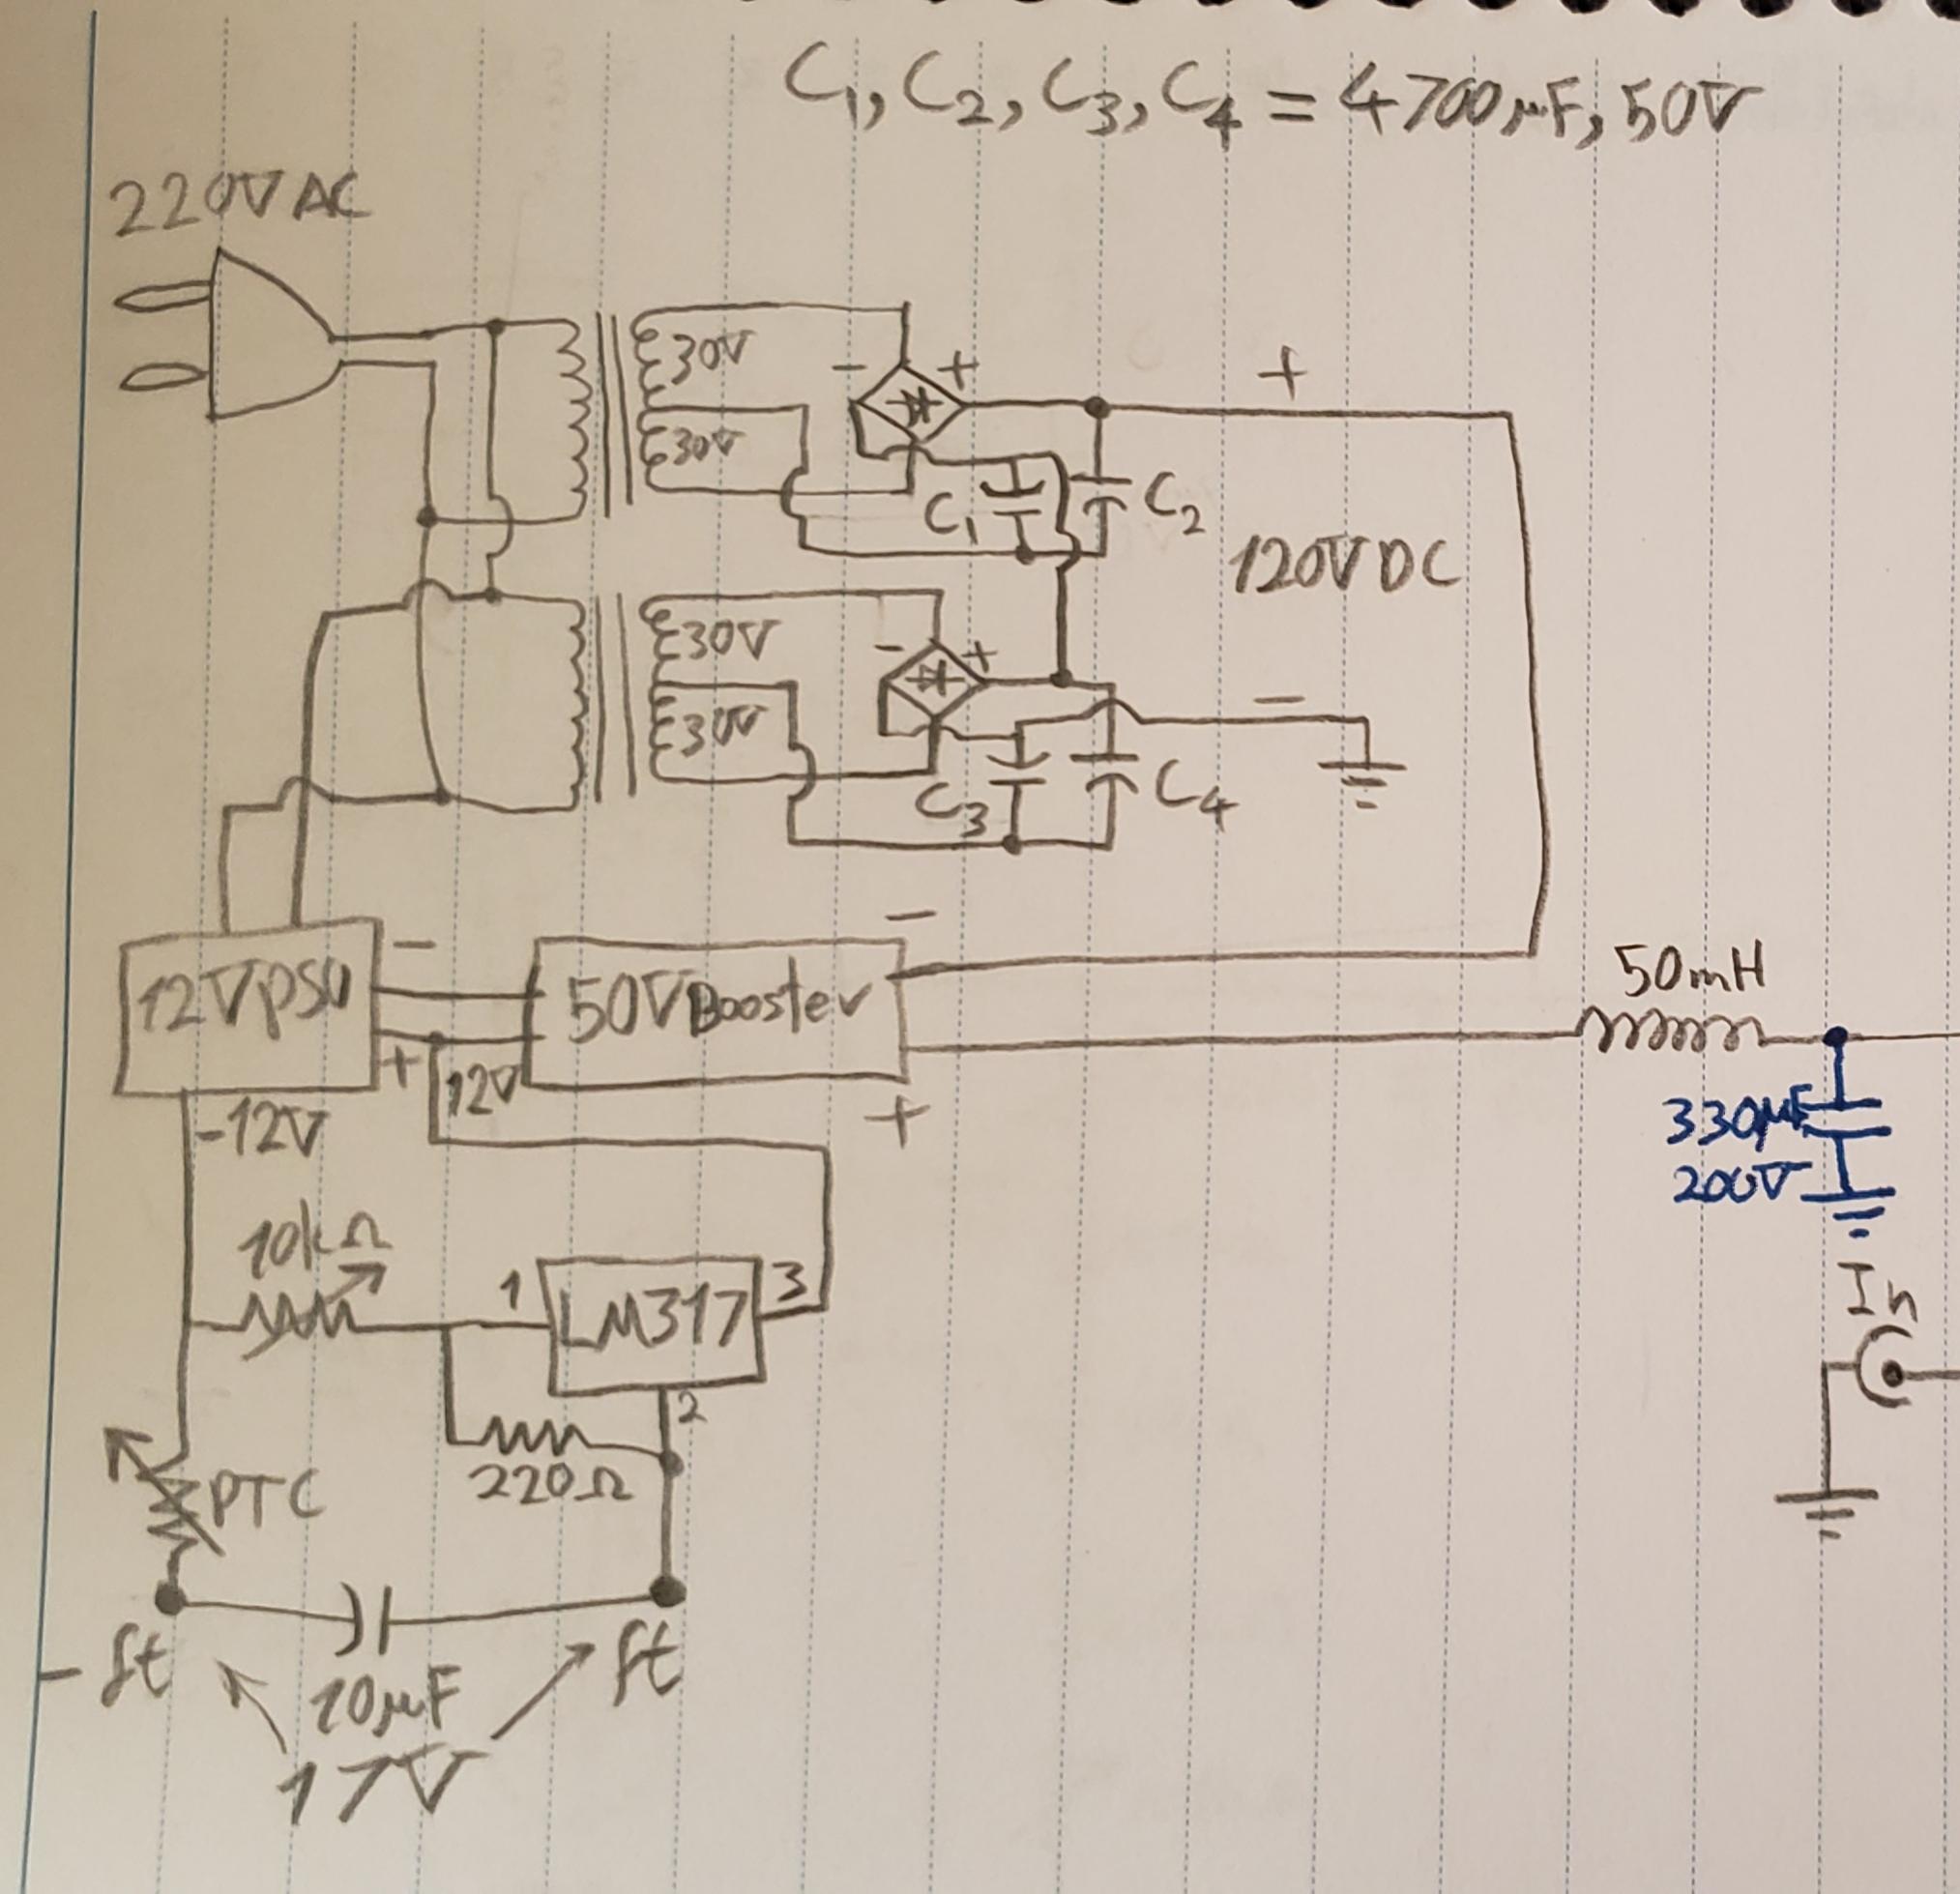 C1, C2, C3, C4 = 4700µF, 50V
220V AC
30V
- +
+
30V
C1
C2
120V DC
30V
- +
30V
-
C3
C4
-
12V PSU
-
50V Booster
50mH
+
12V
+
-12V
330µF
200V
10kΩ
In
1
LM317
3
2
220Ω
PTC
- ft
10µF
ft
17V